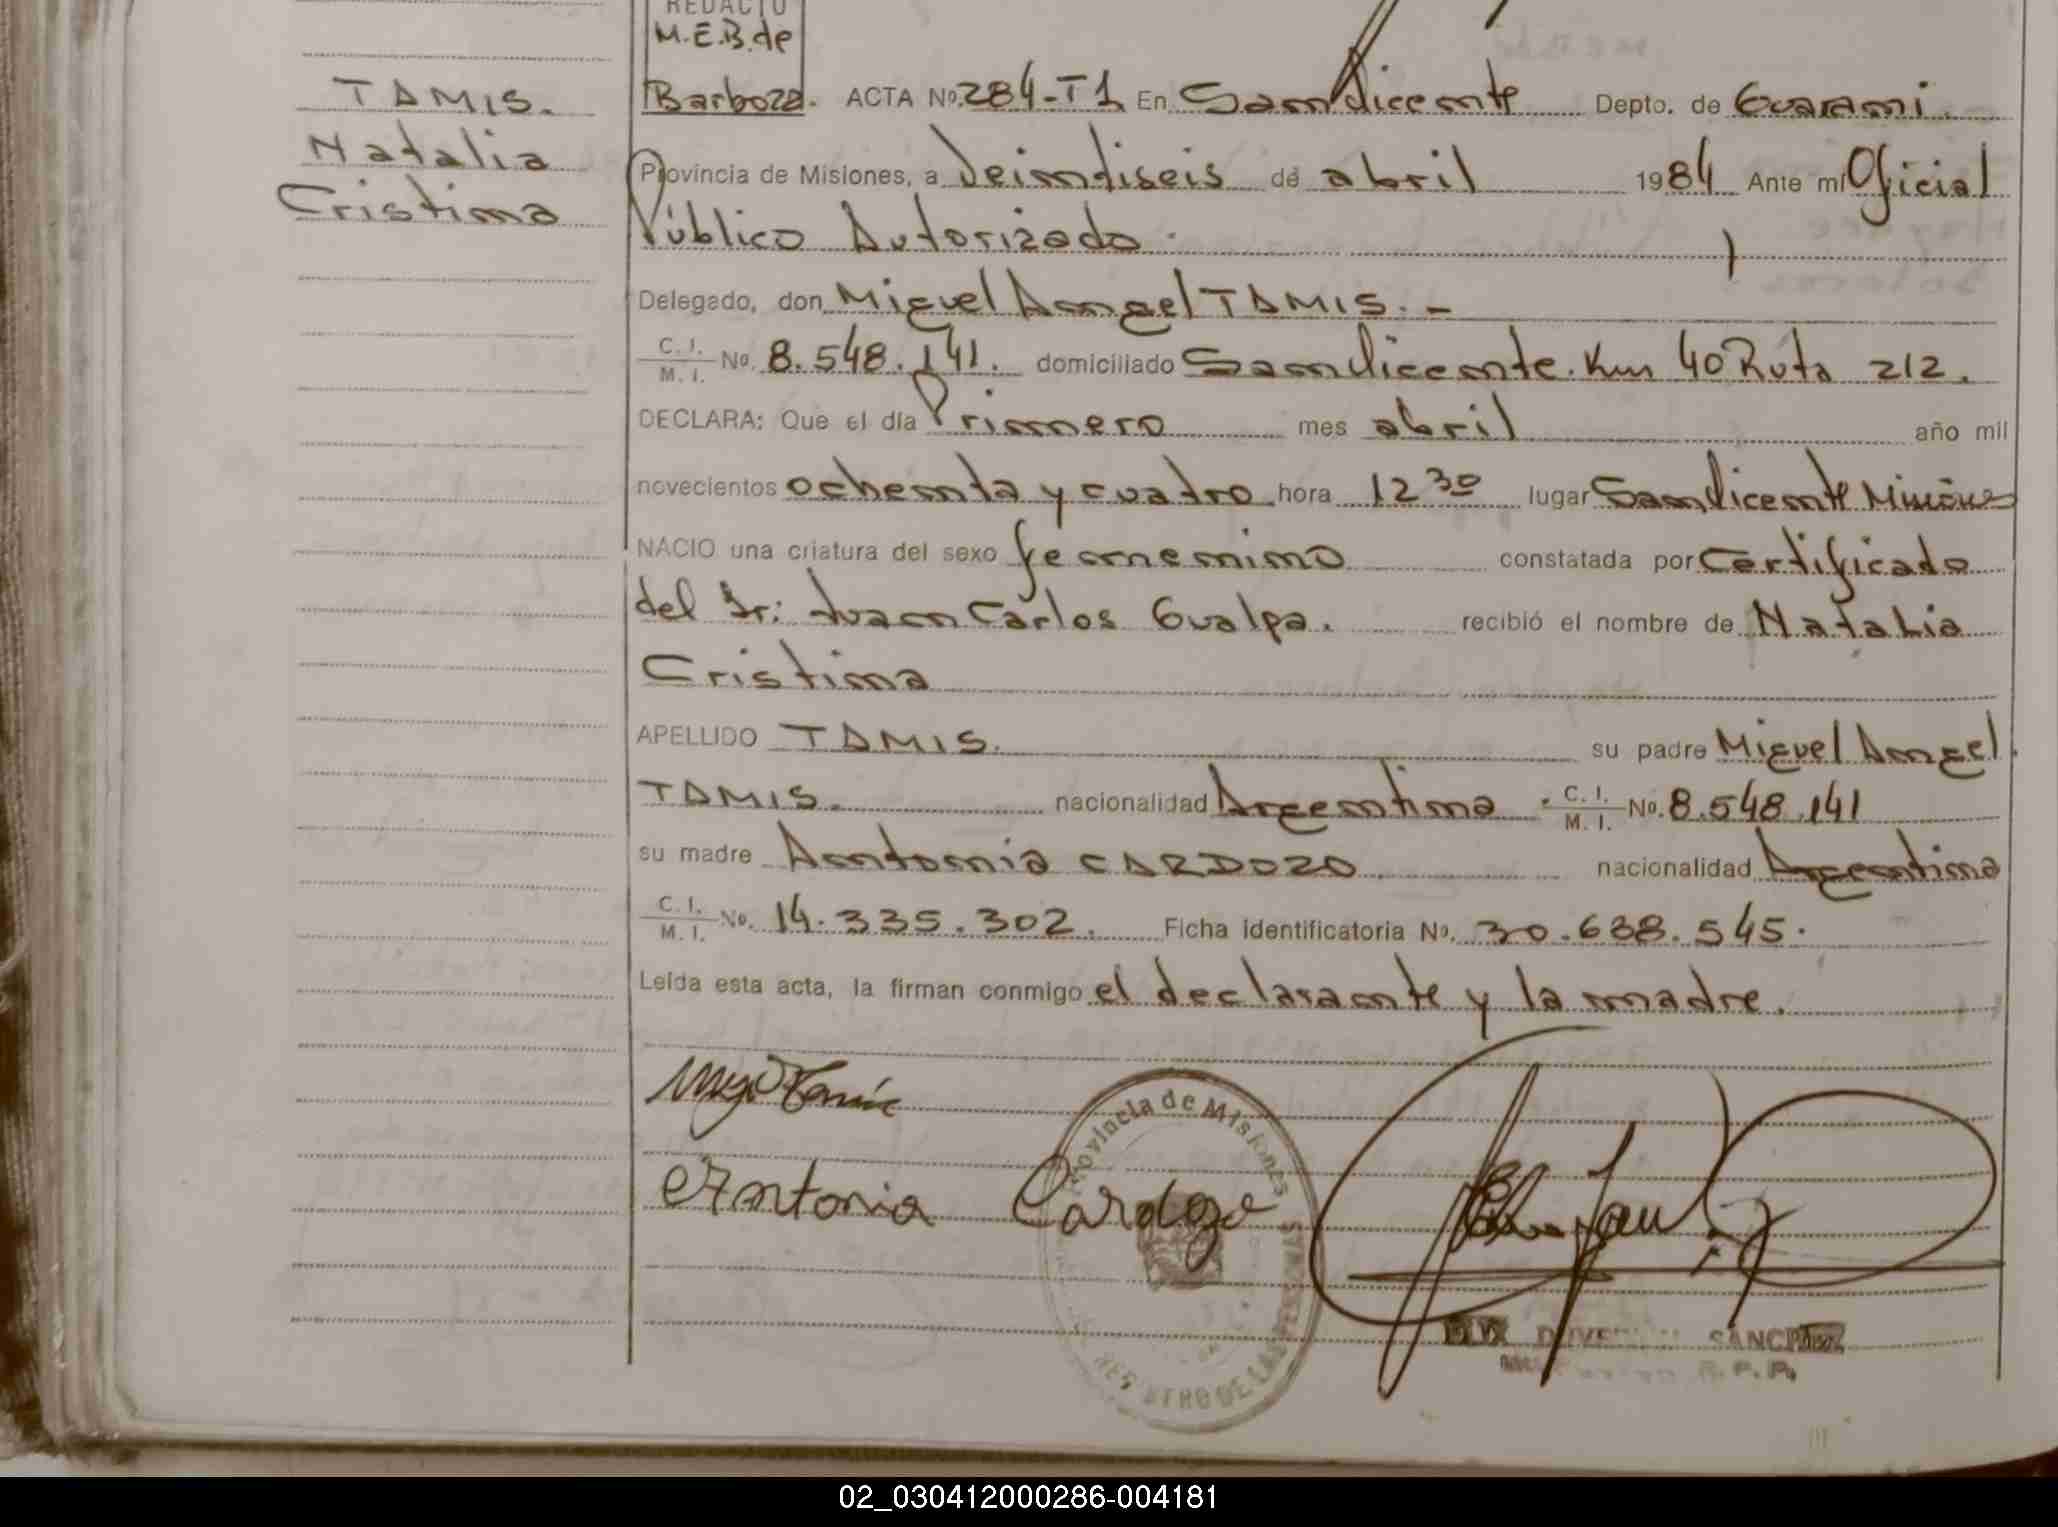 REDACTO
M.E.B. de
TAMIS. Barboza. ACTA Nº. 284-T1 En San Vicente Depto. de Guarani.
Natalia Provincia de Misiones, a Veintiseis de abril 1984 Ante mi Oficial
Cristina Público Autorizado.
Delegado, don Miguel Angel TAMIS. -
C. I. / M. I. Nº. 8.548.141. domiciliado San Vicente. Km 40 Ruta 212.
DECLARA: Que el día Primero mes abril año mil
novecientos ochenta y cuatro hora 12 30 lugar San Vicente Misiones
NACIO una criatura del sexo femenino constatada por Certificado
del Dr: Juan Carlos Gualpa. recibió el nombre de Natalia
Cristina
APELLIDO TAMIS. su padre Miguel Angel
TAMIS. nacionalidad Argentina. C. I. / M. I. Nº. 8.548.141
su madre Antonia CARDOZO nacionalidad Argentina
C. I. / M. I. Nº. 14.335.302. Ficha identificatoria Nº. 30.638.545.
Leída esta acta, la firman conmigo el declarante y la madre.
Provincia de Misiones
Antonia Cardozo
SANCHEZ
REGISTRO DE LAS PERSONAS
02_030412000286-004181